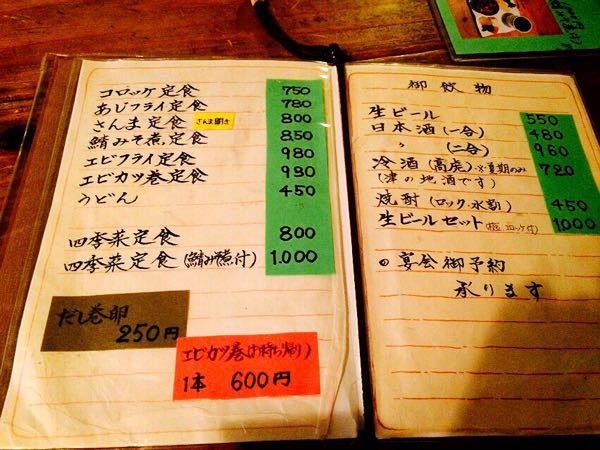 コロッケ定食 750
あじフライ定食 780
さんま定食 さんま開き 800
鯖みそ煮定食 850
エビフライ定食 980
エビカツ巻定食 980
うどん 450
四季菜定食 800
四季菜定食(鯖み煮付) 1.000
だし巻卵
250円
エビカツ巻(お持ち帰り)
1本 600円
御飲物
生ビール 550
日本酒(一合) 480
〃(二合) 960
冷酒(高虎)※夏期のみ 720
(津の地酒です)
焼酎(ロック・水割) 450
生ビールセット 1000
◎宴会御予約
承ります